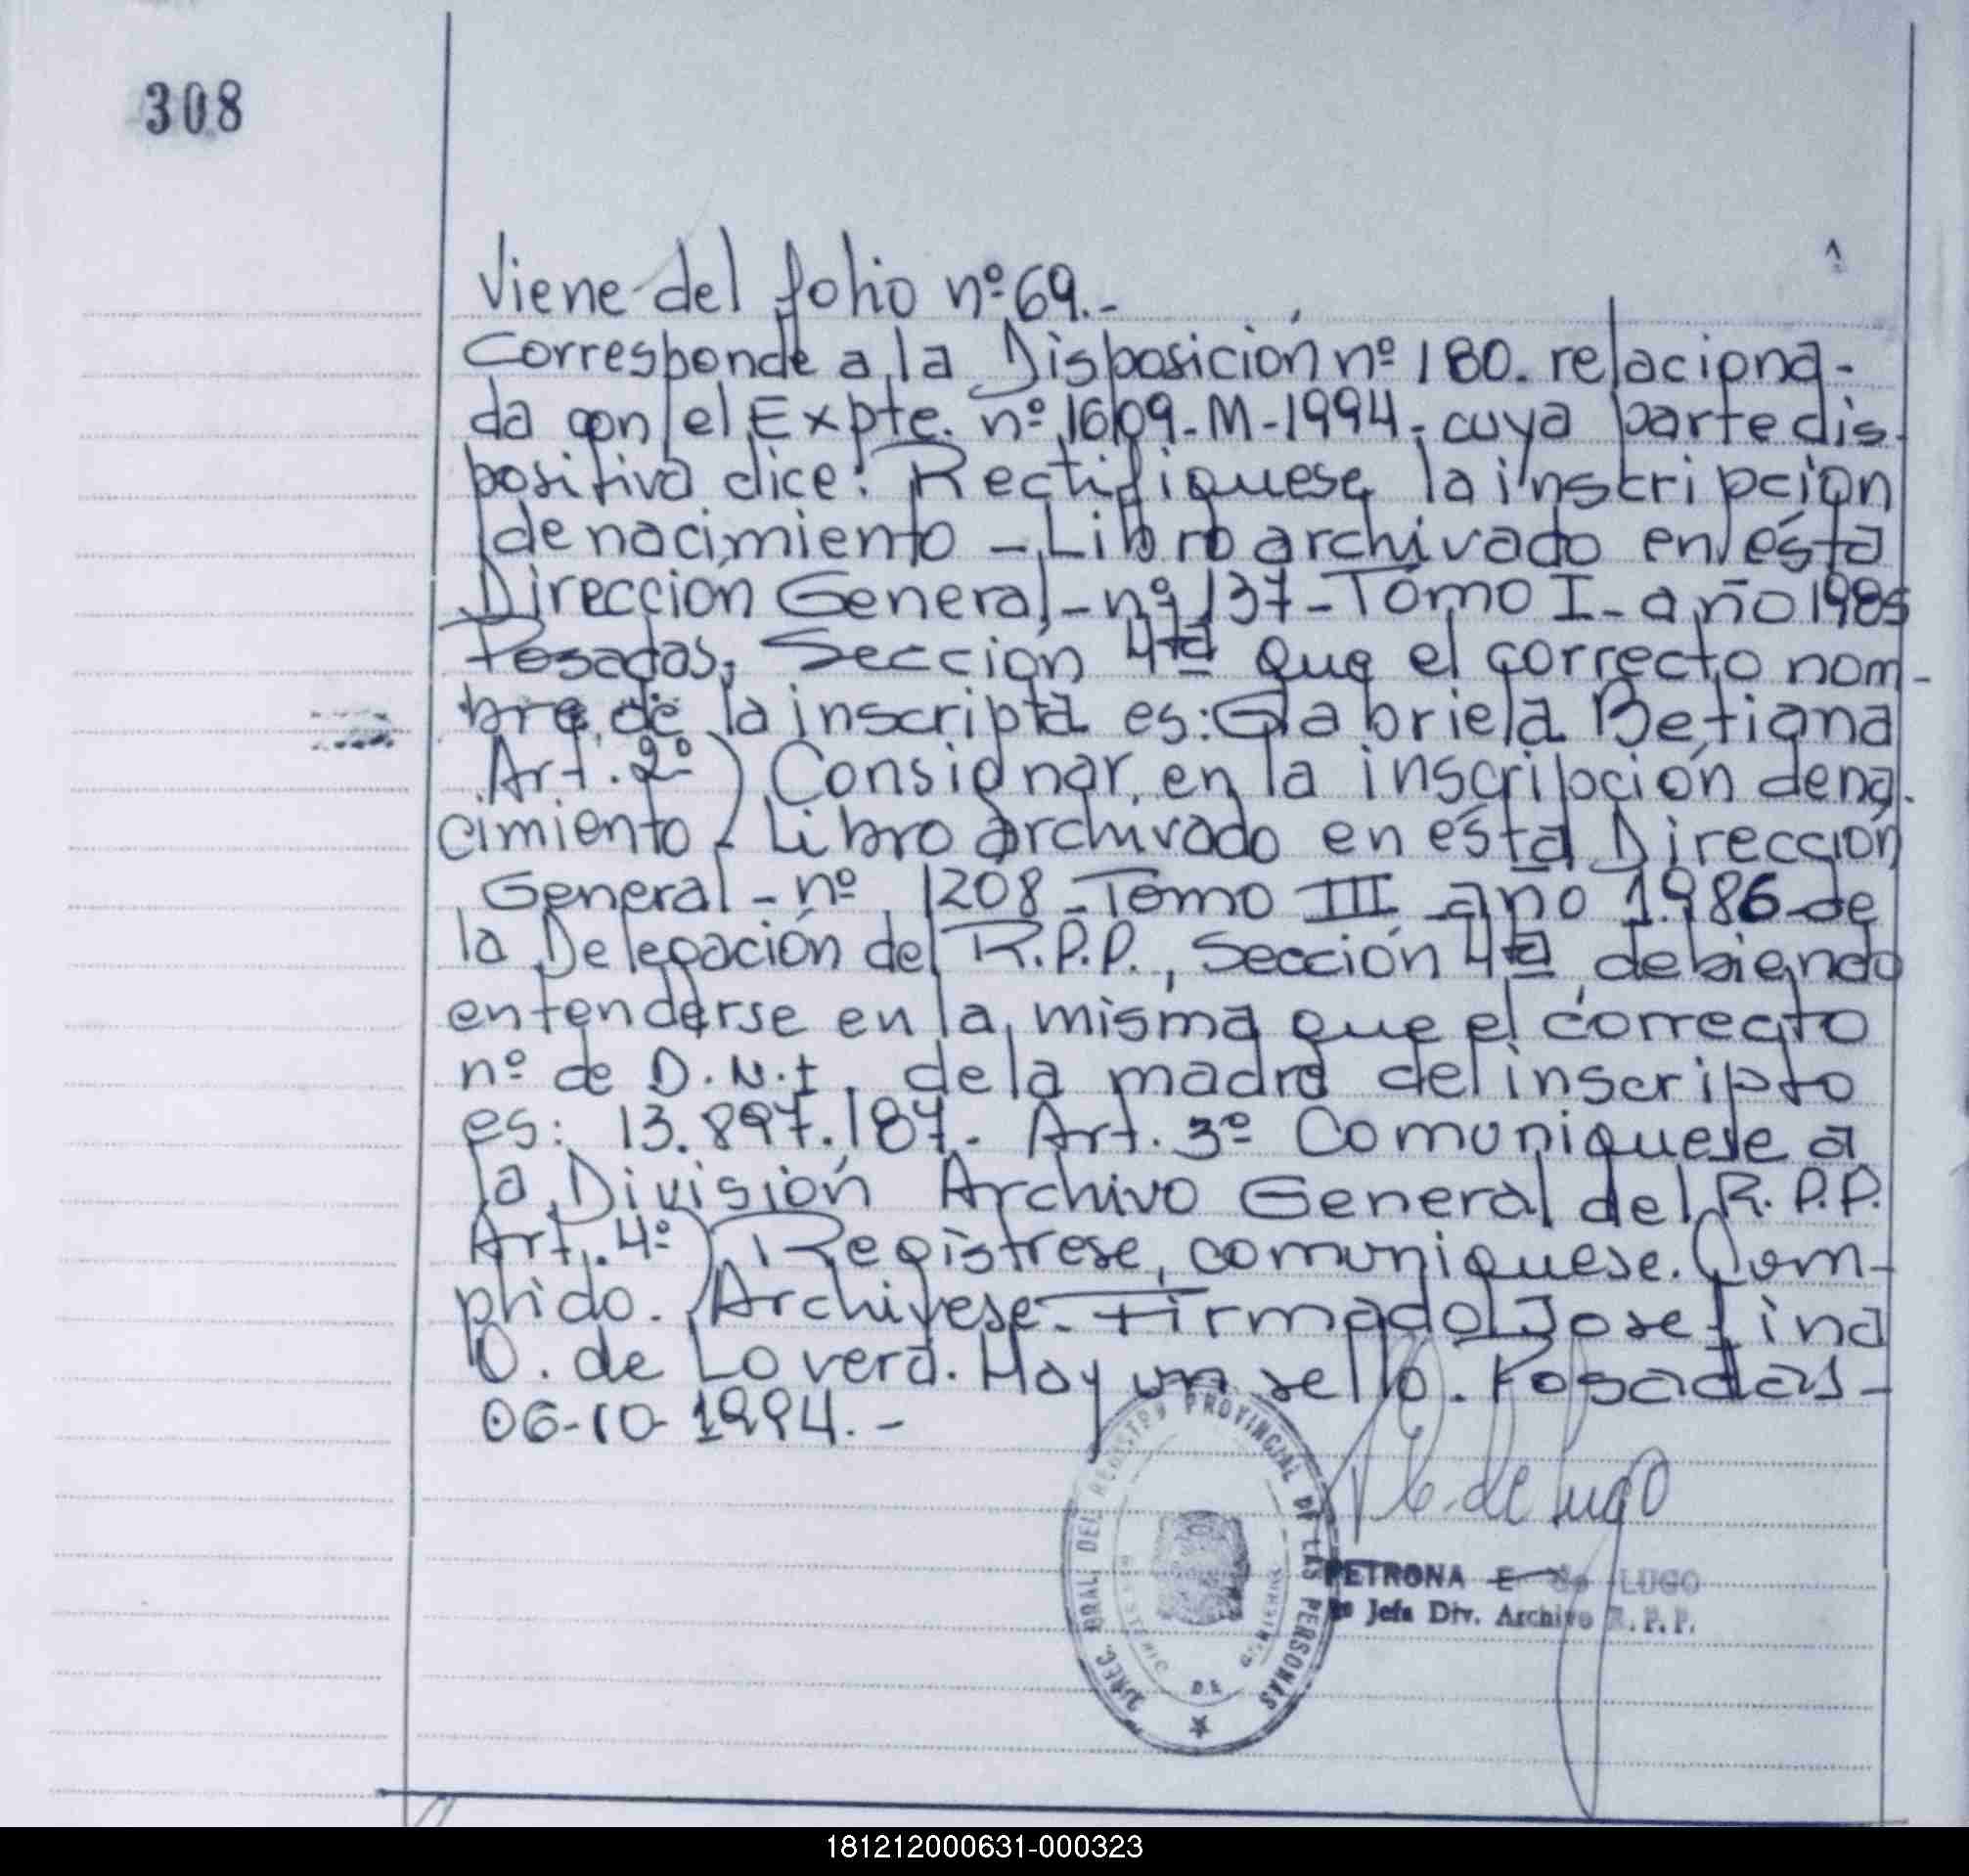 308
Viene del folio nº 69.-
Corresponde a la Disposición nº 180. relaciona-
da con el Expte. nº 1609-M-1994, cuya parte dis-
positiva dice: Rectifiquese la inscripción
de nacimiento - Libro archivado en ésta
Dirección General - nº 137 - Tomo I - año 1985
Posadas, Sección 4ta que el correcto nom-
bre de la inscripta es: Gabriela Betiana
Art. 2º) Consignar en la inscripción de na-
cimiento - Libro archivado en ésta Dirección
General - nº 1208 - Tomo III año 1.986 de
la Delegación del R.P.P., Sección 4ta debiendo
entenderse en la misma que el correcto
nº de D.N.I. de la madre del inscripto
es: 13.897.187. Art. 3º Comuniquese a
la División Archivo General del R.P.P.
Art. 4º) Registrese, comuniquese. Cum-
plido. Archivese. Firmado Josefina
O. de Lovera. Hay un sello. Posadas-
06-10-1994.-
DIREC. GRAL. DEL REGISTRO PROVINCIAL DE LAS PERSONAS
MINISTERIO DE GOBIERNO
P. E. de Lugo
PETRONA E de LUGO
Jefa Div. Archivo R.P.P.
181212000631-000323